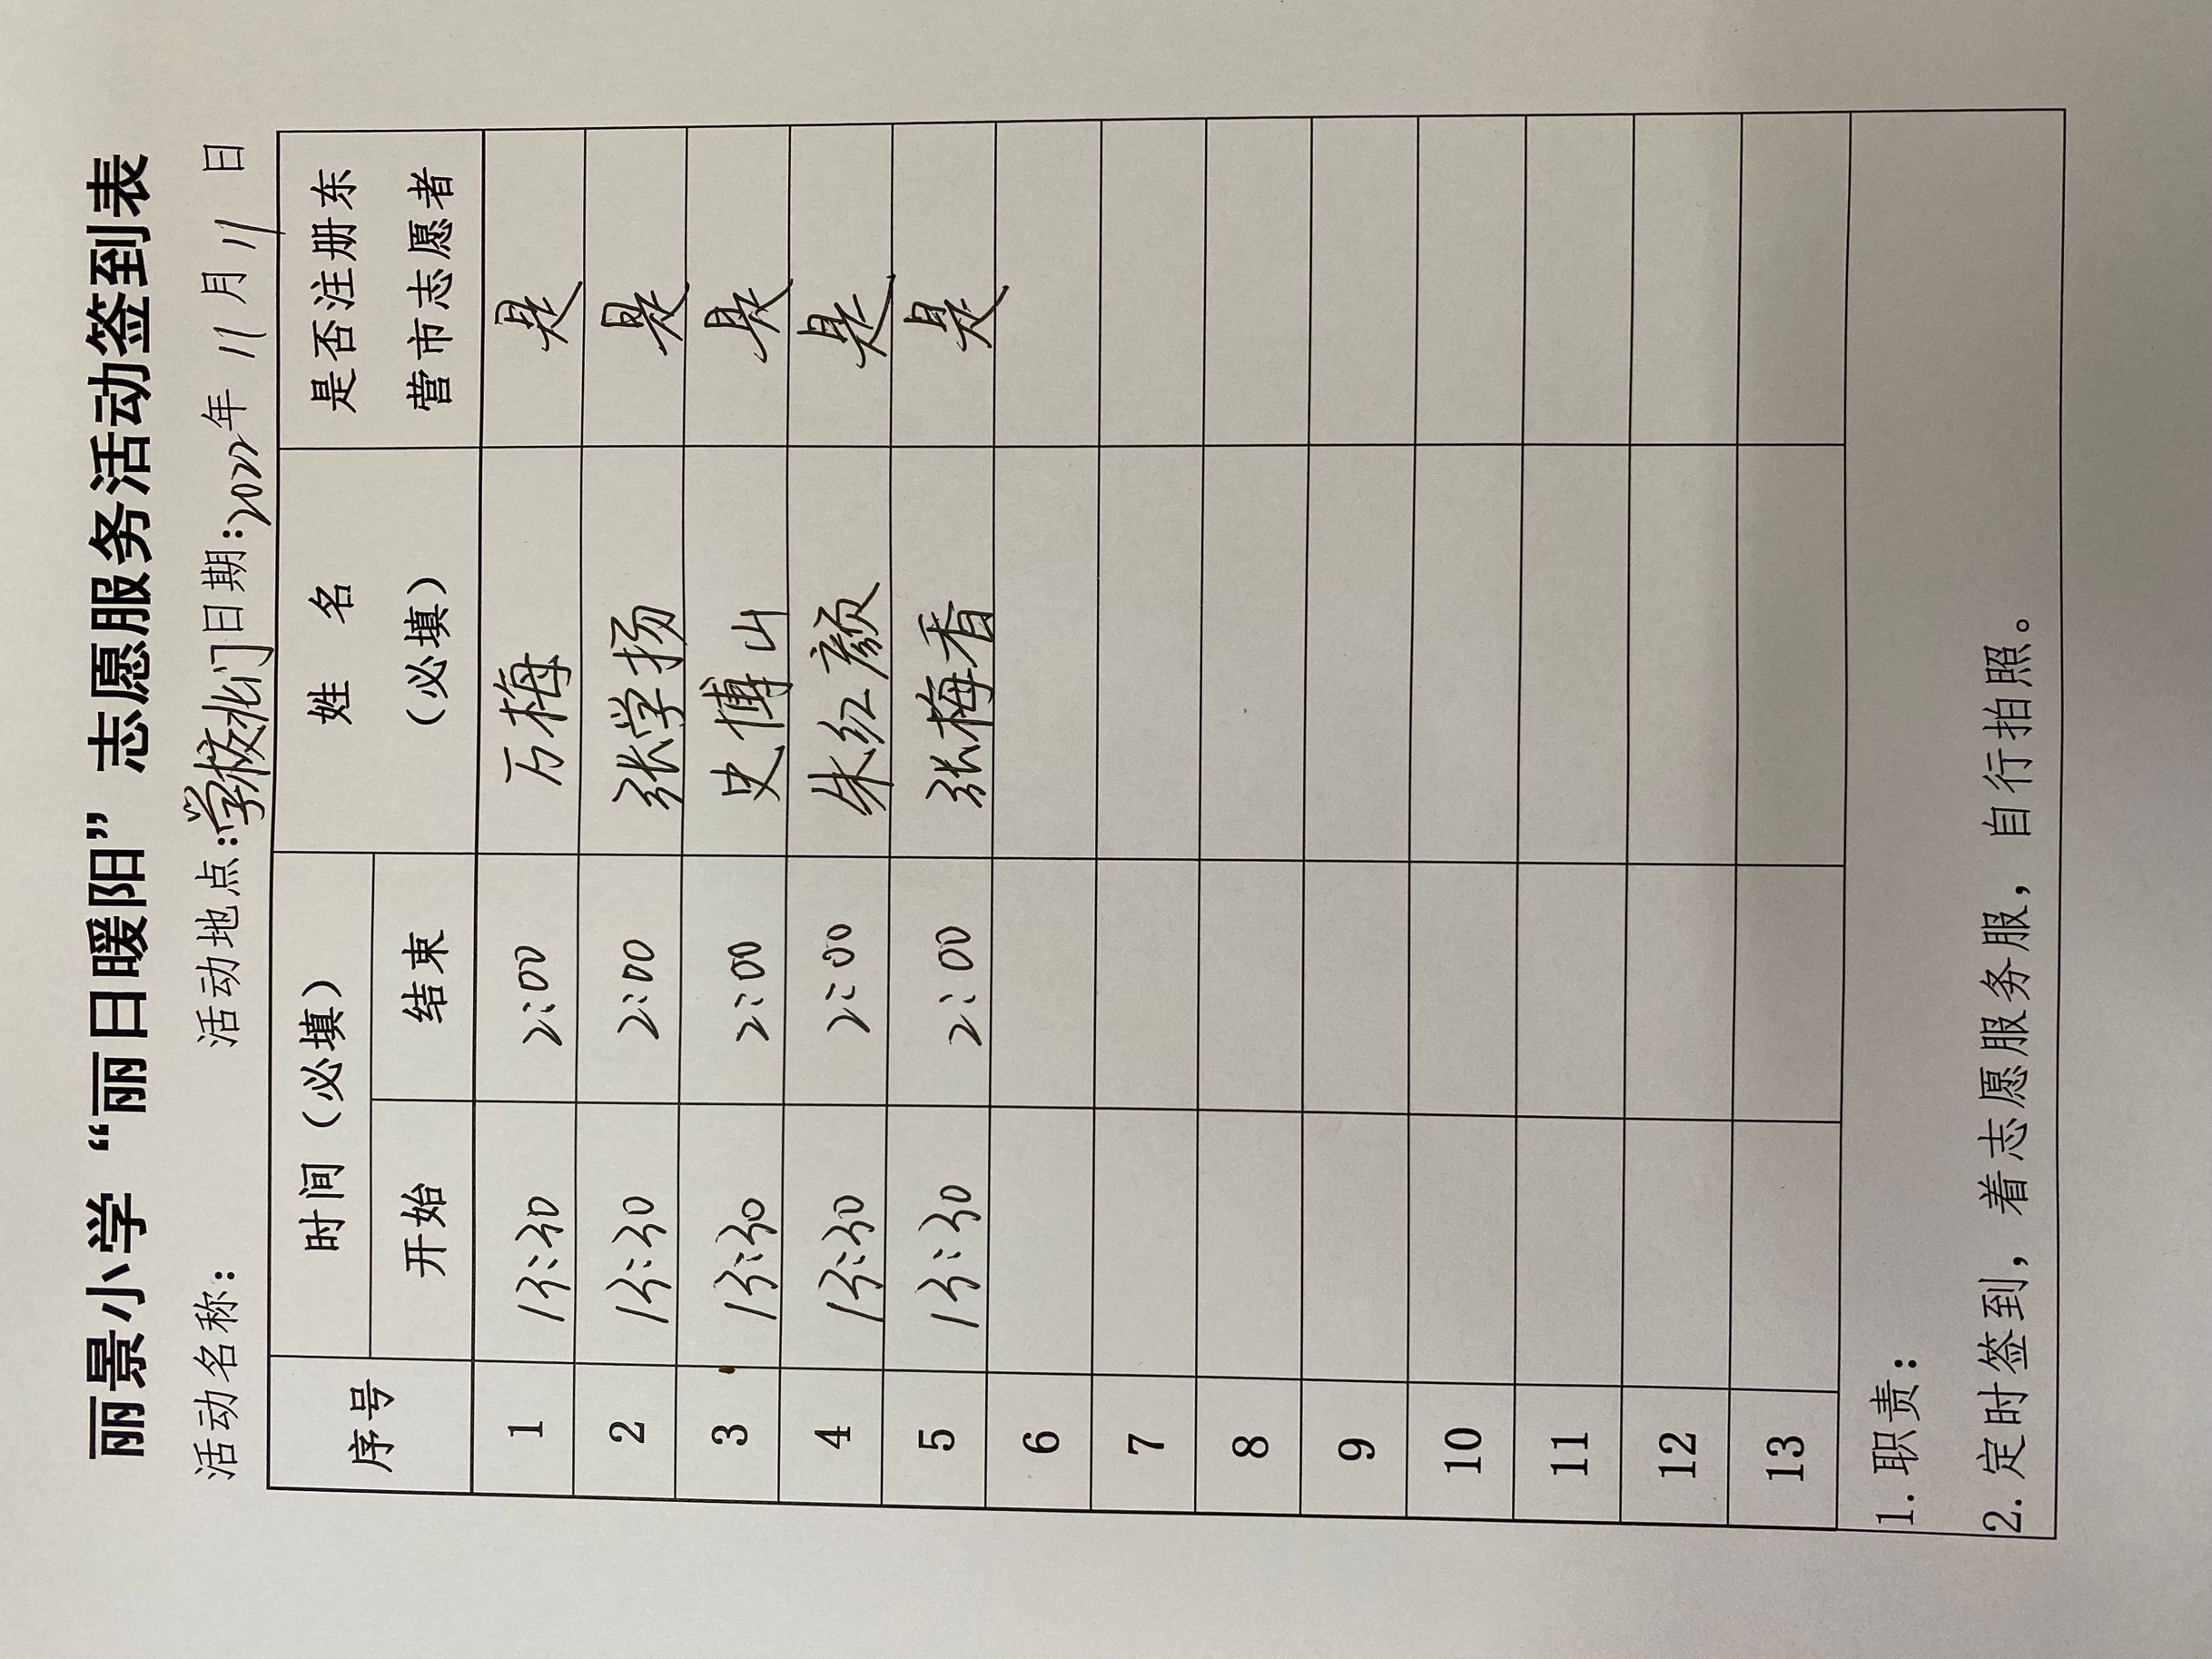 丽景小学“丽日暖阳”志愿服务活动签到表
活动名称： 活动地点：学校北门 日期：2022年 11月 11 日
序号 时间（必填） 姓 名（必填） 是否注册东营市志愿者
开始 结束
1 13:30 2:00 万梅 是
2 13:30 2:00 张学扬 是
3 13:30 2:00 史博山 是
4 13:30 2:00 朱红颜 是
5 13:30 2:00 张梅香 是
6
7
8
9
10
11
12
13
1.职责：
2.定时签到，着志愿服务服，自行拍照。